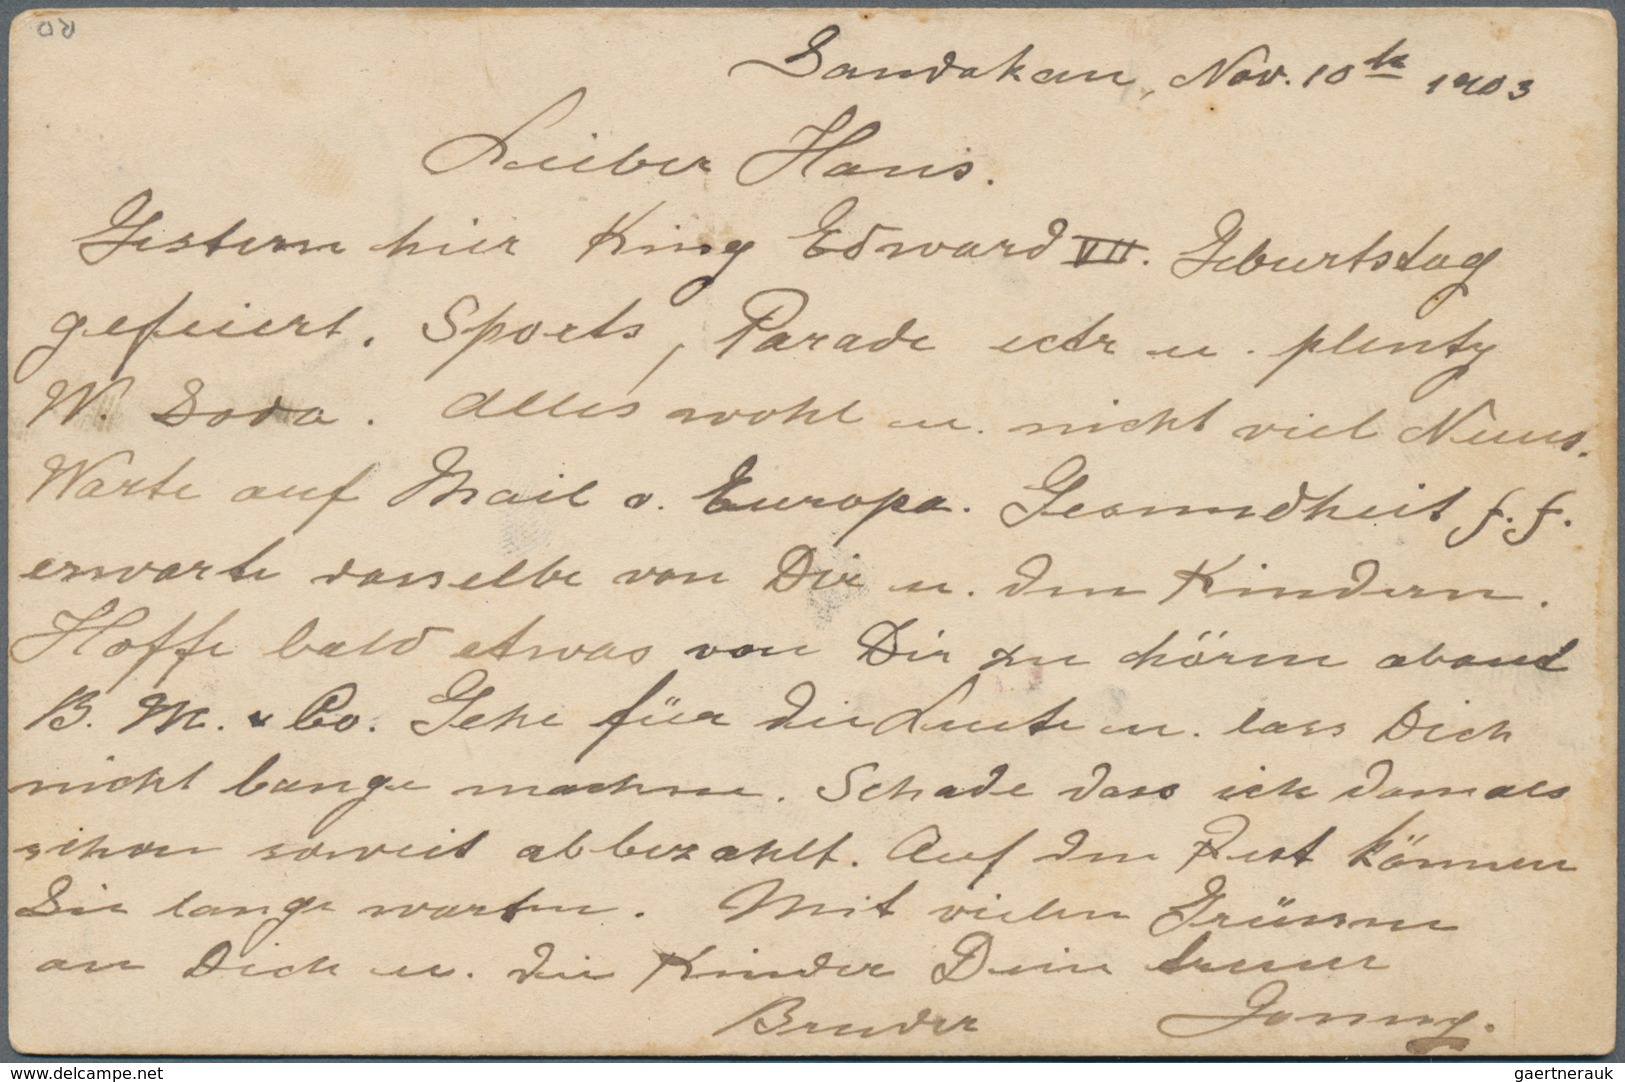 Sandakan, Nov. 10th 1903
Lieber Hans.
Gestern hier King Edward VII. Geburtstag
gefeiert. Sports, Parade ectr u. plenty
W. Soda. Alles wohl u. nicht viel Neues.
Warte auf Mail v. Europa. Gesundheit f.f.
erwarte dasselbe von Dir u. den Kindern.
Hoffe bald etwas von Dir zu hören about
B. M. & Co. Gehe für die Leute u. lass Dich
nicht bange machen. Schade dass ich damals
schon soweit abbezahlt. Auf den Rest können
Sie lange warten. Mit vielen Grüssen
an Dich u. die Kinder Dein treuer
Bruder Jonny.
www.delcampe.net
gaertnerauk